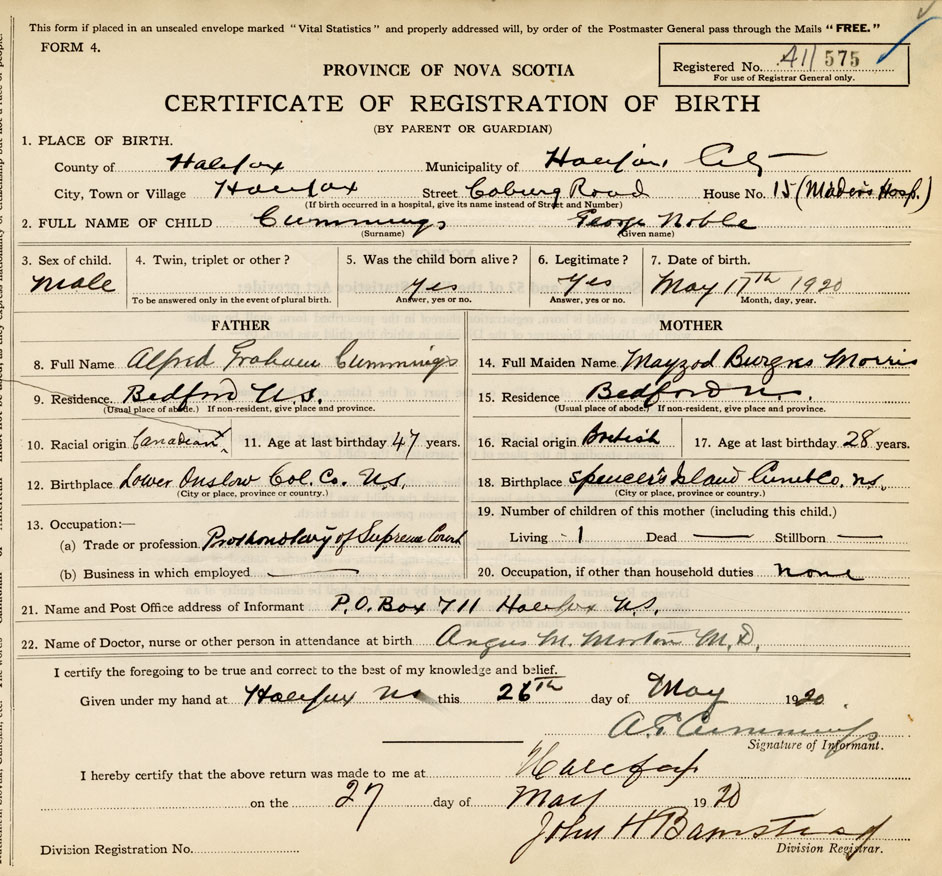 This form if placed in an unsealed envelope marked "Vital Statistics" and properly addressed will, by order of the Postmaster General pass through the Mails "FREE."
FORM 4.
Registered No. 411 575
For use of Registrar General only.
PROVINCE OF NOVA SCOTIA
CERTIFICATE OF REGISTRATION OF BIRTH
(BY PARENT OR GUARDIAN)
1. PLACE OF BIRTH.
County of Halifax Municipality of Halifax City
City, Town or Village Halifax Street Coburg Road House No. 15 (Mader's Hosp.)
(If birth occurred in a hospital, give its name instead of Street and Number)
2. FULL NAME OF CHILD Cummings George Noble
(Surname) (Given name)
3. Sex of child. 4. Twin, triplet or other? 5. Was the child born alive? 6. Legitimate? 7. Date of birth.
Male yes yes May 17th 1920
To be answered only in the event of plural birth. Answer, yes or no. Answer, yes or no. Month, day, year.
FATHER MOTHER
8. Full Name Alfred Graham Cummings 14. Full Maiden Name Morris
9. Residence. Bedford N.S. 15. Residence Bedford N.S.
(Usual place of abode.) If non-resident, give place and province. (Usual place of abode.) If non-resident, give place and province.
10. Racial origin Canadian 11. Age at last birthday 47 years. 16. Racial origin British 17. Age at last birthday 28 years.
12. Birthplace Lower Onslow Col. Co. N.S. 18. Birthplace Spencer's Island N.S.
(City or place, province or country.) (City or place, province or country.)
19. Number of children of this mother (including this child.)
13. Occupation:—
(a) Trade or profession Prothonotary of Supreme Court Living 1 Dead — Stillborn —
(b) Business in which employed — 20. Occupation, if other than household duties none
21. Name and Post Office address of Informant P.O. Box 711 Halifax N.S.
22. Name of Doctor, nurse or other person in attendance at birth Angus M. Morton M.D.
I certify the foregoing to be true and correct to the best of my knowledge and belief.
Given under my hand at Halifax NS this 26th day of May 1920
A.G. Cummings
Signature of Informant.
I hereby certify that the above return was made to me at Halifax
on the 27 day of May 1920
John H Barnstead
Division Registration No. Division Registrar.